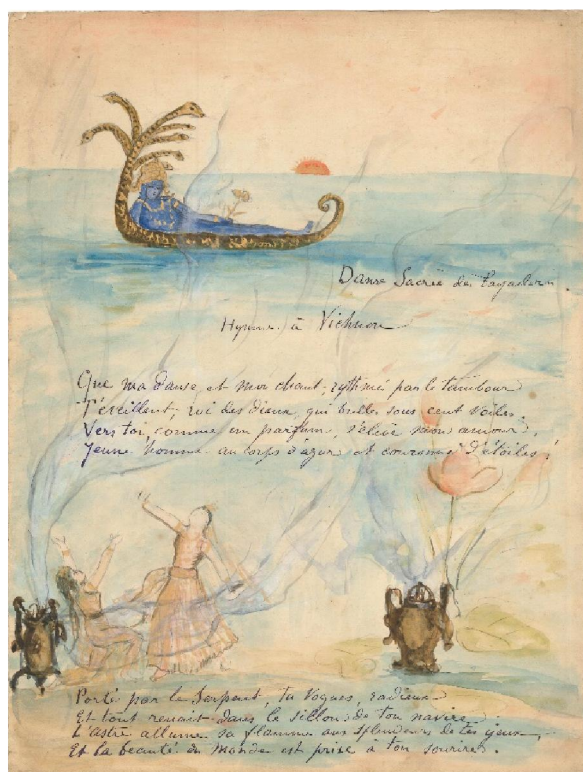 Danse Sacrée des Bayadères.
Hymne à Vichnou
Que ma danse, et mon chant, rythmé par le tambour
T'éveillent, roi des dieux, qui brilles sous cent voiles.
Vers toi, comme un parfum, s'élève mon amour,
Jeune homme au corps d'azur et couronné d'étoiles !
Porté par le Serpent, tu vogues, radieux
Et tout renaît dans le sillon de ton navire
L'astre allume sa flamme aux splendeurs de tes yeux
Et la beauté du Monde est prise à ton sourire.